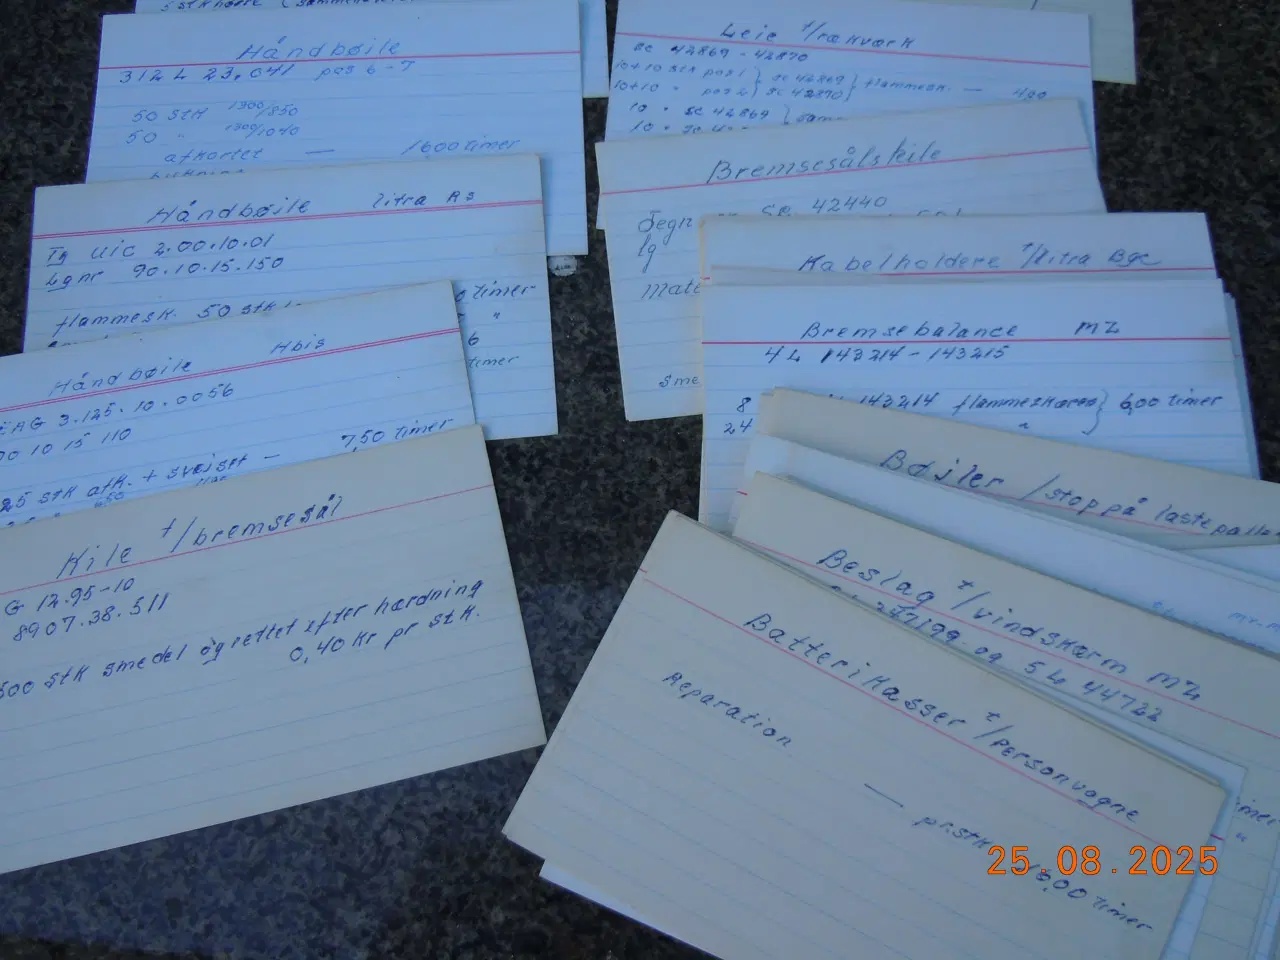 Håndbøile
312 L 23.041 pos 6-7
50 stk 1300/850
50 " 1300/1040
afkortet — 16,00 timer
Håndbøile litra As
Tg UIC 2.00.10.01
Lg nr 90.10.15.150
flammesk. 50 stk
timer
"
6
timer
Håndbøile Hbis
EAG 3.125.10.0056
00 10 15 110
25 stk afk. + svejset — 7,50 timer
Kile t/bremsesål
G 12.95-10
8907.38.511
500 stk smedet og rettet efter hærdning
0,40 kr pr stk.
Leie t/rækværk
SC 42869 - 42870
10+10 stk pos 1 } SC 42869 } flammesk. —
10+10 " pos 2 } SC 42870
10 " SC 42869
10 " SC
Bremsesålskile
Tegn SC 42440
lg
Mate
Sme
Kabelholdere t/litra Bgc
Bremsebalance MZ
4L 143214 - 143215
8 143214 flammeskåret } 6,00 timer
24 "
Bøjler /stoppå lastepalle
Beslag t/vindskærm MZ
247199 og 5L 44722
Batterikasser t/personvogne
Reparation
— pr. stk 18,00 timer
25.08.2025